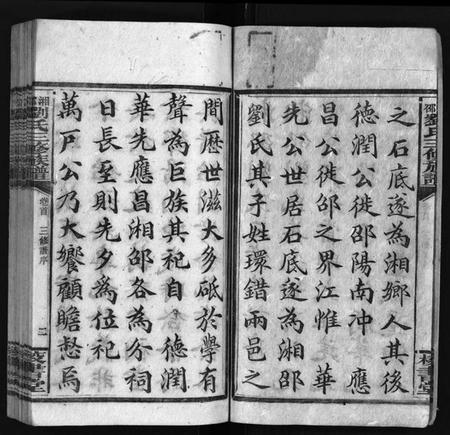 邵劉氏三修族譜
之石底遂為湘鄉人其後
德潤公徙邵陽南冲 應
昌公徙邵之界江惟 華
先公世居石底遂為湘邵
劉氏其子姓環錯兩邑之
間歷世滋大多砥於學有
聲為巨族其祀自 德潤
華先應昌湘邵各為分祠
日長至則先夕為位祀
萬戶公乃大饗顧瞻愁焉
湘邵劉氏三修族譜
卷首 三修譜序 二